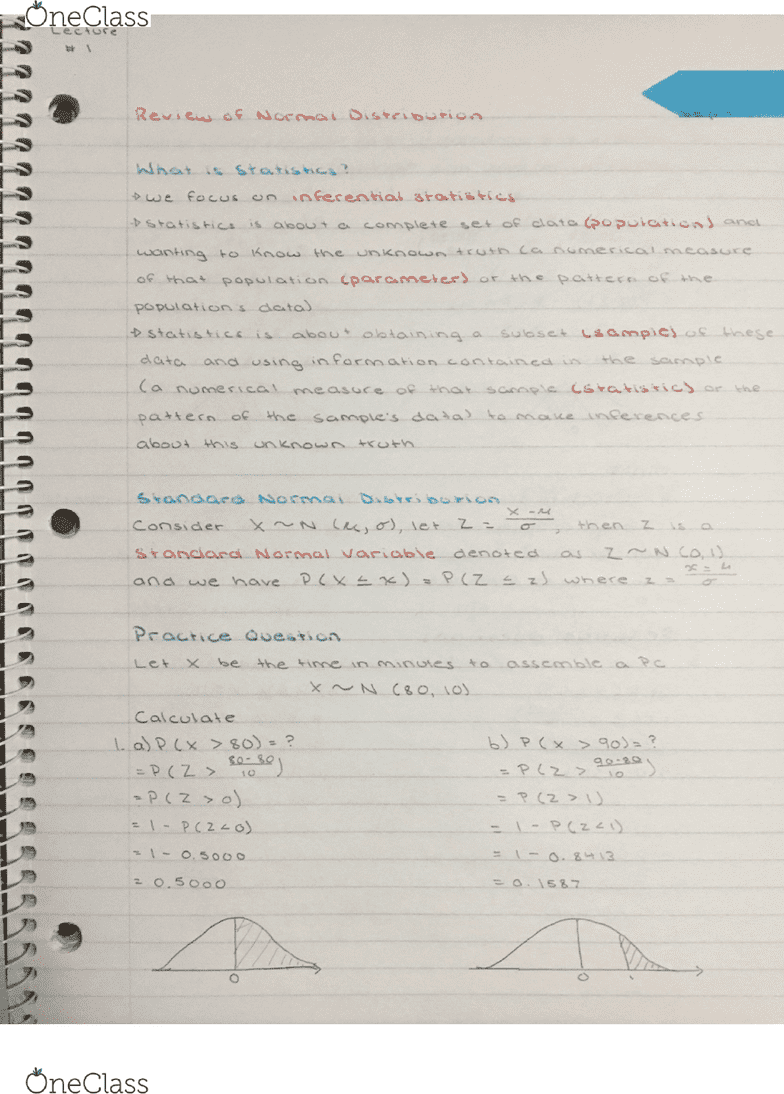 OneClass
Lecture
# 1
Review of Normal Distribution
What is Statistics?
→ we focus on inferential statistics
→ statistics is about a complete set of data (population) and
wanting to know the unknown truth (a numerical measure
of that population (parameter) or the pattern of the
population's data)
→ statistics is about obtaining a subset (sample) of these
data and using information contained in the sample
(a numerical measure of that sample (statistic) or the
pattern of the sample's data) to make inferences
about this unknown truth
Standard Normal Distribution
Consider X ~ N (μ, σ), let Z = (X - μ)/σ, then Z is a
Standard Normal Variable denoted as Z ~ N (0,1)
and we have P(X ≤ x) = P(Z ≤ z) where z = (x - μ)/σ
Practice Question
Let X be the time in minutes to assemble a PC
X ~ N (80, 10)
Calculate
1. a) P(X > 80) = ?
= P(Z > (80-80)/10)
= P(Z > 0)
= 1 - P(Z < 0)
= 1 - 0.5000
= 0.5000
0
b) P(X > 90) = ?
= P(Z > (90-80)/10)
= P(Z > 1)
= 1 - P(Z < 1)
= 1 - 0.8413
= 0.1587
0
OneClass